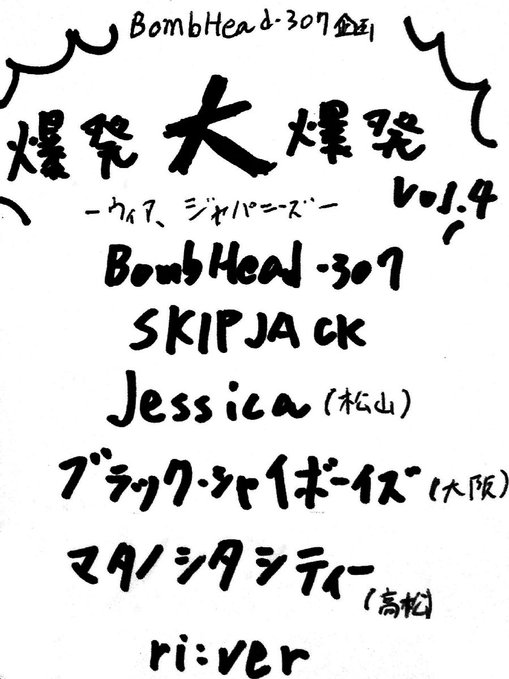 BombHead-307企画
爆発大爆発
Vol.4
-ウィア、ジャパニーズ-
BombHead-307
SKIPJACK
Jessica(松山)
ブラック・シャイボーイズ(大阪)
マタノシタシティー(高松)
ri:ver